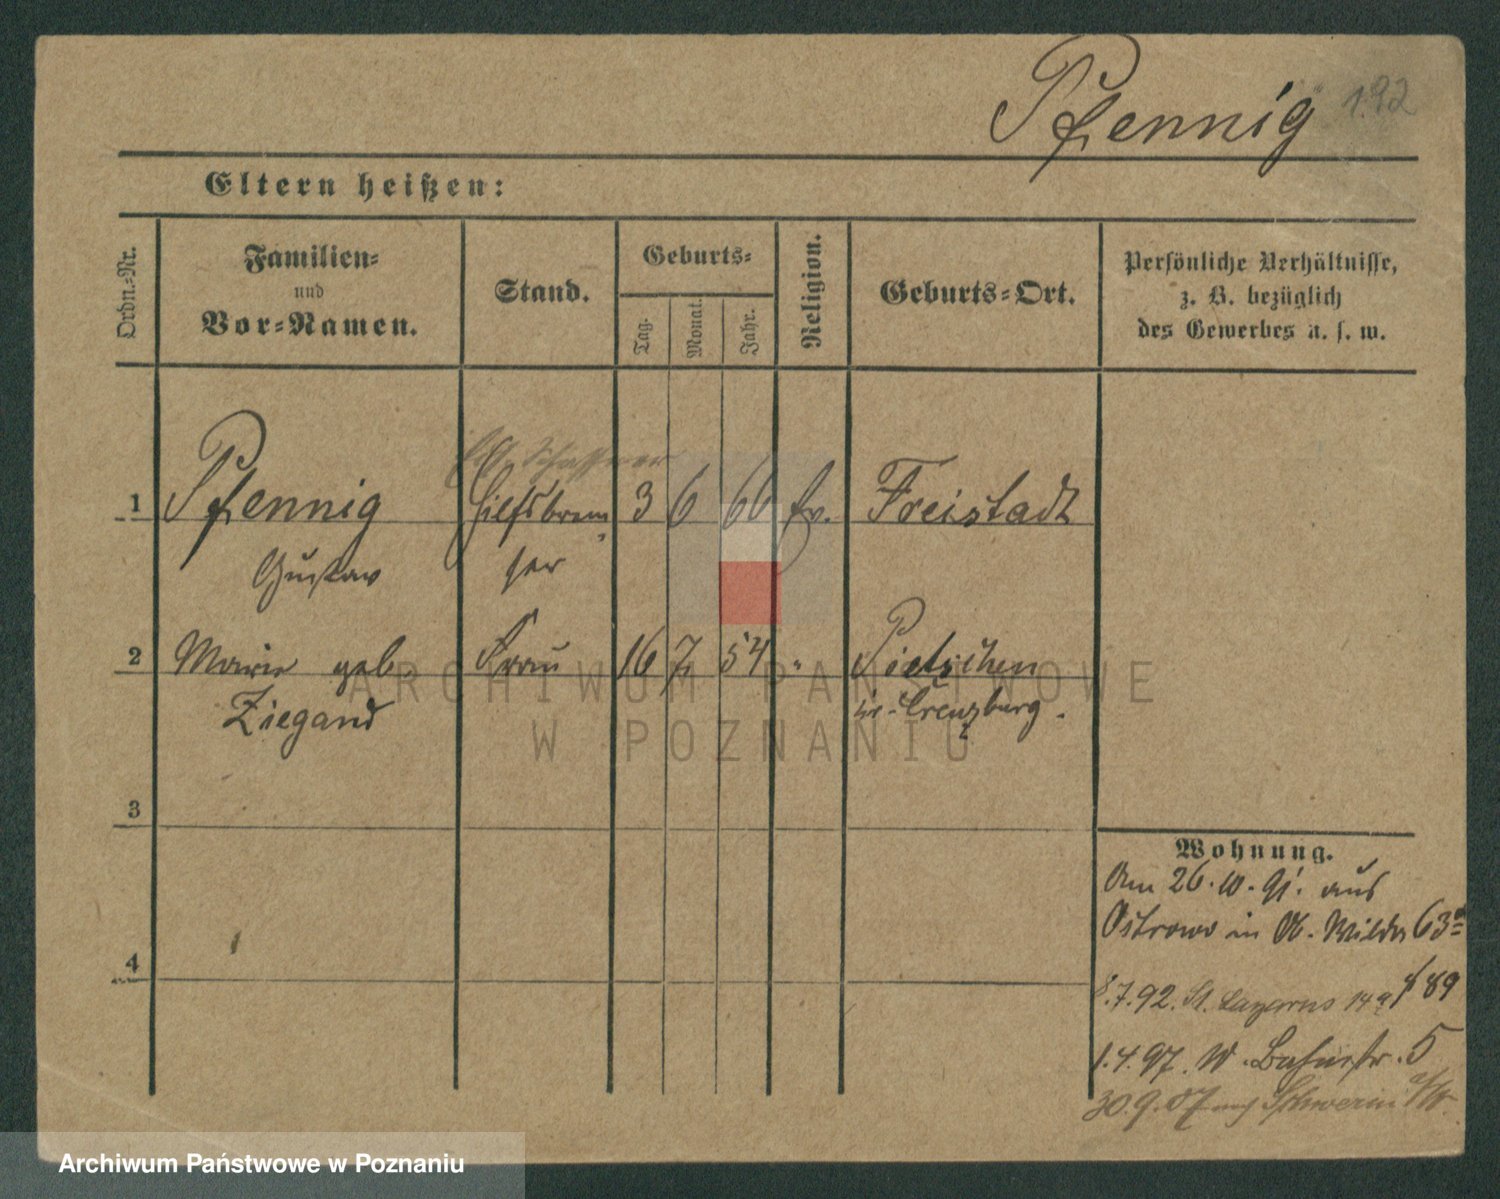 Pfennig 192
Eltern heißen:
Ordn.-Nr.
Familien-
und
Vor-Namen.
Stand.
Geburts-
Tag.
Monat.
Jahr.
Religion.
Geburts-Ort.
Persönliche Verhältnisse,
z. B. bezüglich
des Gewerbes u. s. w.
Schaffner
1 Pfennig Hilfsbrem- 3 6 66 Ev. Freistadt
Gustav ser
2 Marie geb Frau 16 7 54 " Pietschen
Ziegand Kr. Creuzburg.
3
4
Wohnung.
Am 26.10.91. aus
Ostrowo in Ob. Wilda 63
8.7.92. St. Lazarus 14a 89
1.4.97. W. Bahnstr. 5
30.9.07 nach Schwerin a/W.
ARCHIWUM PAŃSTWOWE
W POZNANIU
Archiwum Państwowe w Poznaniu